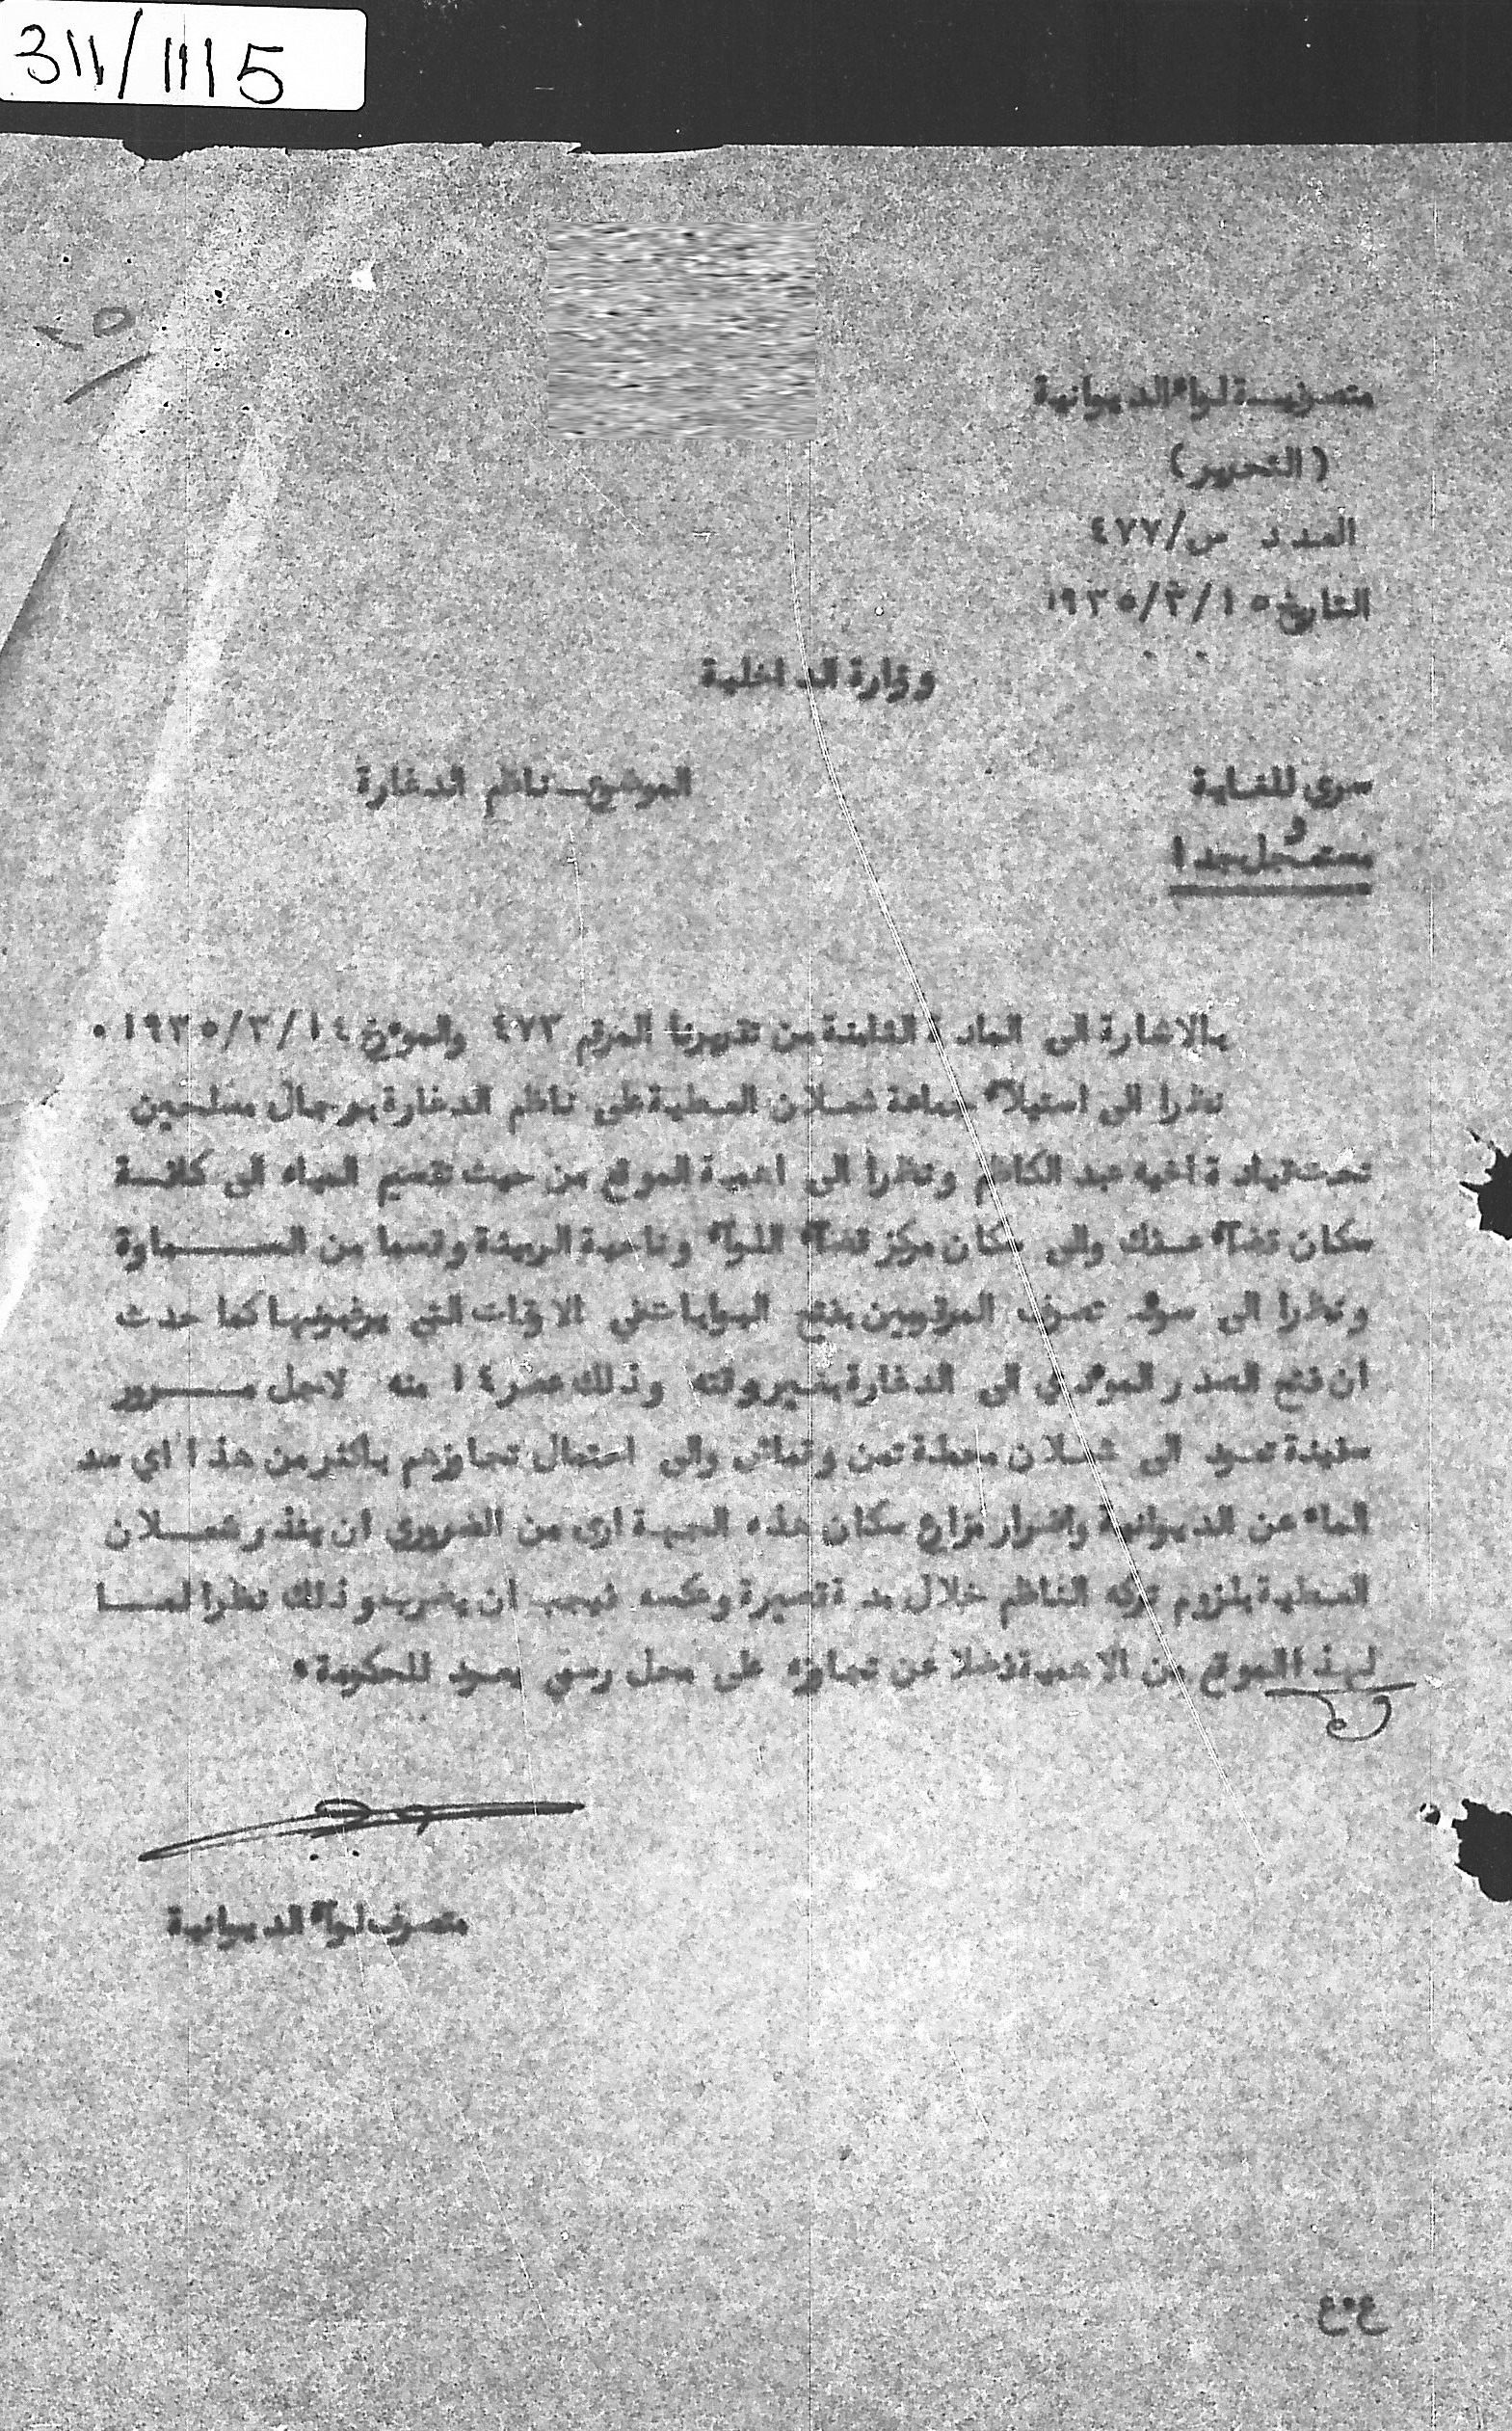 311/1115
٢٥
متصرفية لواء الديوانية
(التحرير)
العدد س/٤٧٧
التاريخ ١٥/٣/١٩٣٥
وزارة الداخلية
سري للغاية
الموضوع ـ ناظم الدغارة
و
مستعجل جدا
بالاشارة الى المادة الثامنة من تقريرنا المرقم ٤٧٣ والمؤرخ ١٤/٣/١٩٣٥ ٠
نظرا الى استيلاء جماعة شعلان العطية على ناظم الدغارة برجال مسلحين
تحت قيادة اخيه عبد الكاظم ونظرا الى اهمية الموقع من حيث تقسيم المياه الى كافة
سكان قضاء عفك والى سكان مركز قضاء اللواء وناحية الرميثة وقسما من السماوة
ونظرا الى سوء تصرف المرقومين بفتح البوابات في الاوقات التي يرغبونها كما حدث
ان فتح الصدر المؤدي الى الدغارة بغير وقته وذلك عصر ١٤ منه لاجل مرور
سفينة تعود الى شعلان محملة تمن وقماش والى احتمال تجاوزهم باكثر من هذا اي سد
الماء عن الديوانية واضرار مزارع سكان هذه الجهة ارى من الضروري ان ينذر شعلان
العطية بلزوم تركه الناظم خلال مدة قصيرة وعكسه فيجب ان يضرب وذلك نظرا لما
لهذا الموقع من الاهمية فضلا عن تجاوزه على محل رسمي يعود للحكومة ٠
متصرف لواء الديوانية
ع٠ع